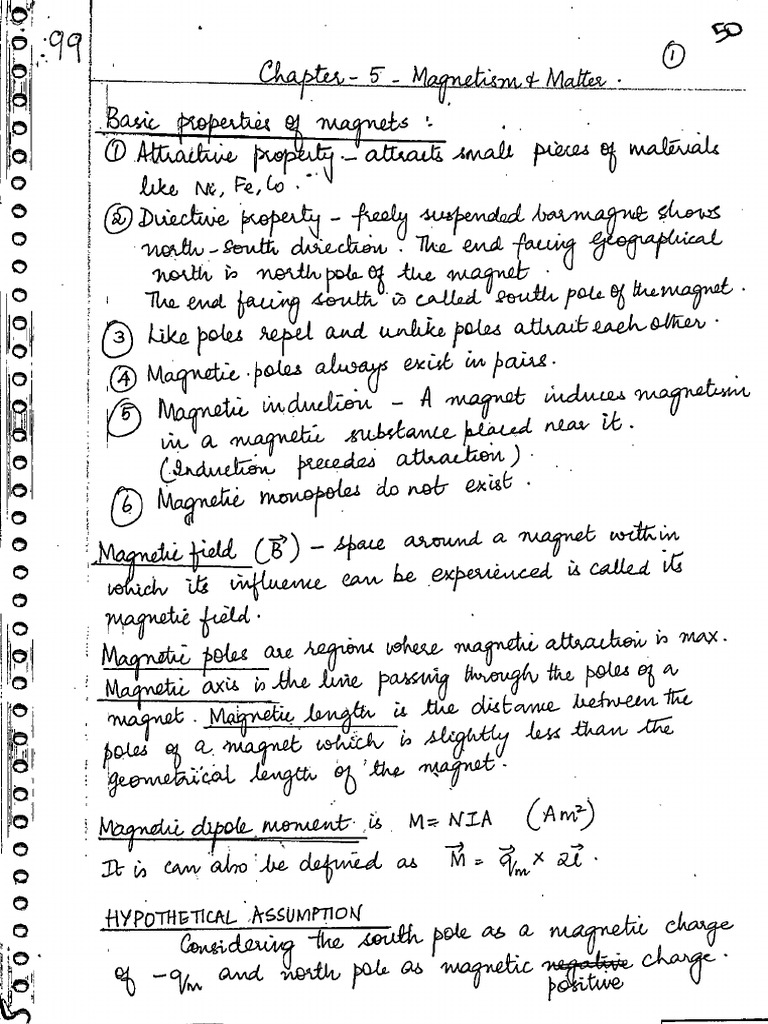 50
99
①
Chapter - 5 - Magnetism & Matter.
Basic properties of magnets :
① Attractive property - attracts small pieces of materials
like Ni, Fe, Co.
② Directive property - freely suspended bar magnet shows
north-south direction. The end facing geographical
north is north pole of the magnet.
The end facing south is called south pole of the magnet.
③ Like poles repel and unlike poles attract each other.
④ Magnetic poles always exist in pairs.
⑤ Magnetic induction - A magnet induces magnetism
in a magnetic substance placed near it.
(Induction precedes attraction).
⑥ Magnetic monopoles do not exist.
Magnetic field (B⃗) - space around a magnet within
which its influence can be experienced is called its
magnetic field.
Magnetic poles are regions where magnetic attraction is max.
Magnetic axis is the line passing through the poles of a
magnet. Magnetic length is the distance between the
poles of a magnet which is slightly less than the
geometrical length of the magnet.
Magnetic dipole moment is M = NIA (Am²)
It is can also be defined as M⃗ = q⃗m × 2l⃗.
HYPOTHETICAL ASSUMPTION
Considering the south pole as a magnetic charge
of -qm and north pole as magnetic negative charge.
positive